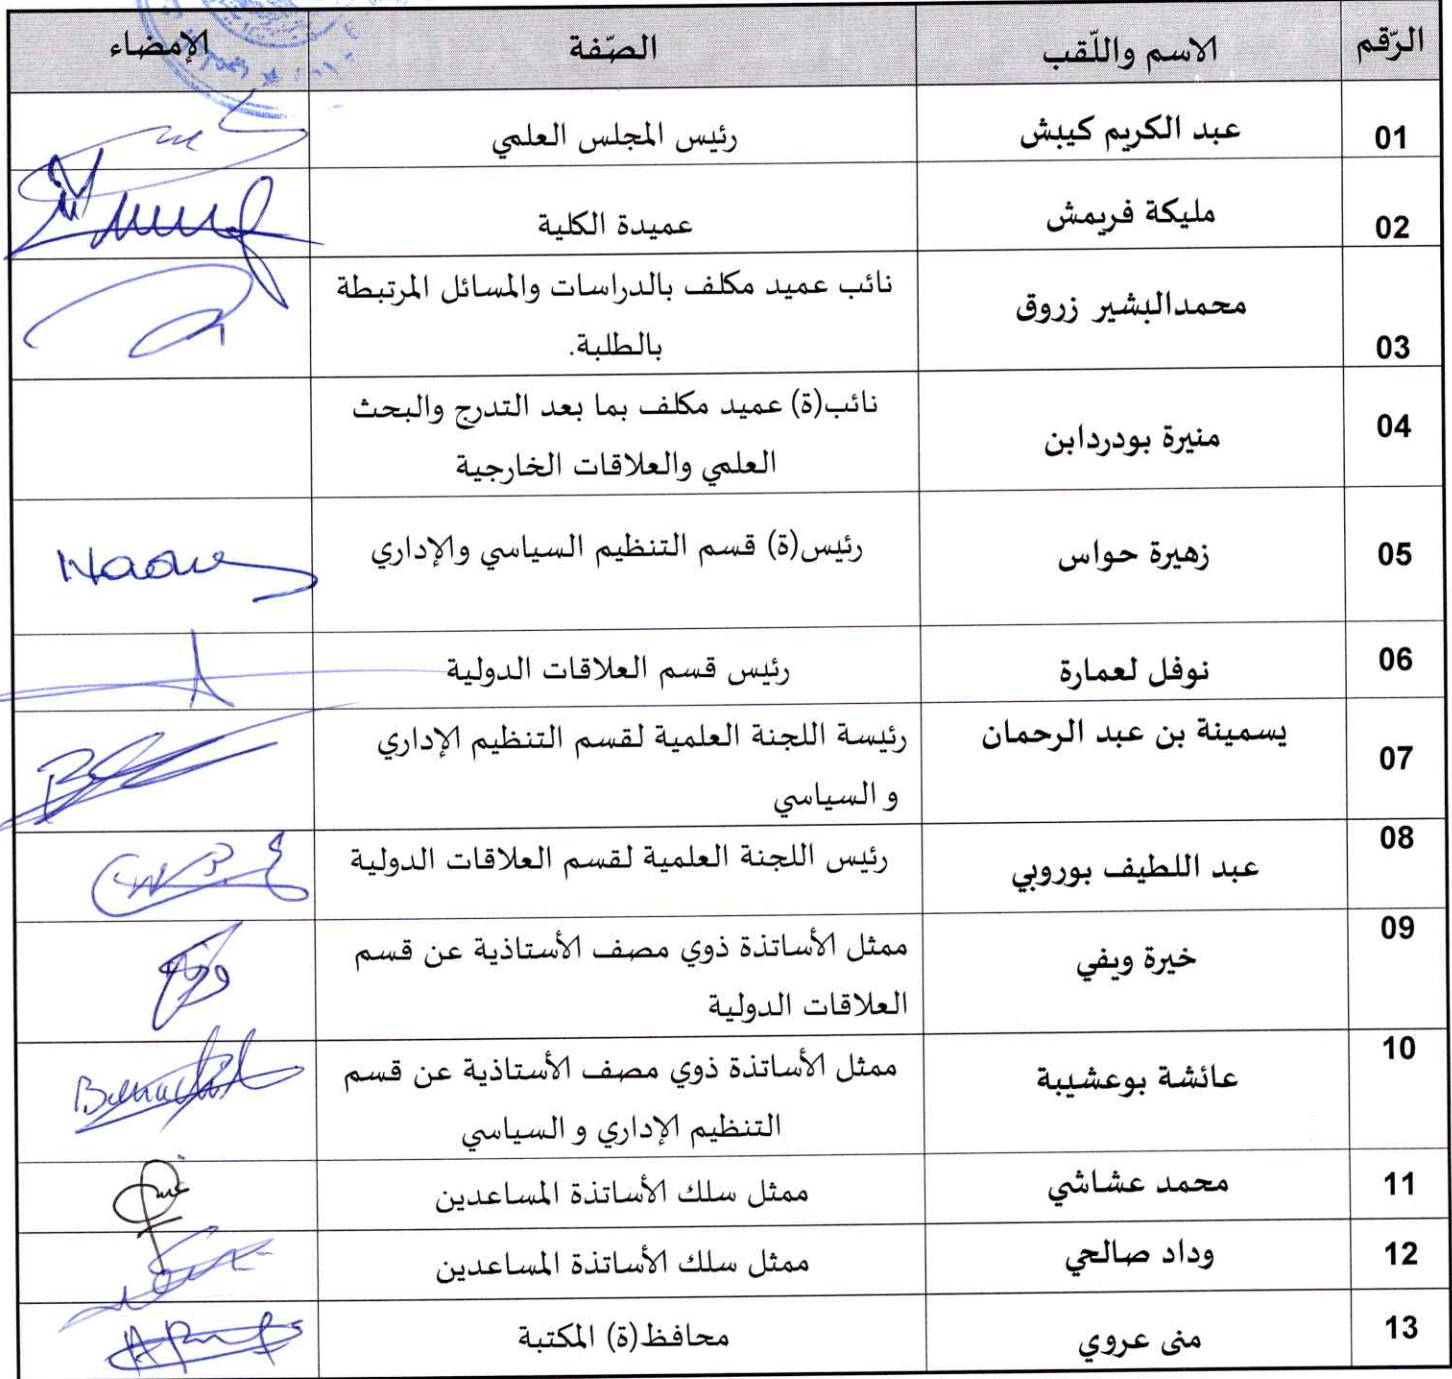 الرّقم الاسم واللّقب الصّفة الإمضاء
01 عبد الكريم كيبش رئيس المجلس العلمي
02 مليكة فريمش عميدة الكلية
03 محمدالبشير زروق نائب عميد مكلف بالدراسات والمسائل المرتبطة
بالطلبة.
04 منيرة بودردابن نائب(ة) عميد مكلف بما بعد التدرج والبحث
العلمي والعلاقات الخارجية
05 زهيرة حواس رئيس(ة) قسم التنظيم السياسي والإداري
06 نوفل لعمارة رئيس قسم العلاقات الدولية
07 يسمينة بن عبد الرحمان رئيسة اللجنة العلمية لقسم التنظيم الإداري
و السياسي
08 عبد اللطيف بوروبي رئيس اللجنة العلمية لقسم العلاقات الدولية
09 خيرة ويفي ممثل الأساتذة ذوي مصف الأستاذية عن قسم
العلاقات الدولية
10 عائشة بوعشيبة ممثل الأساتذة ذوي مصف الأستاذية عن قسم
التنظيم الإداري و السياسي
11 محمد عشاشي ممثل سلك الأساتذة المساعدين
12 وداد صالحي ممثل سلك الأساتذة المساعدين
13 منى عروي محافظ(ة) المكتبة